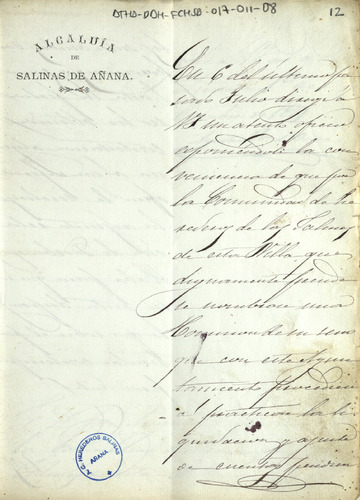 DTHD-DDH-FCHSD-017-011-08
12
ALCALDÍA
DE
SALINAS DE AÑANA.
En 6 del último pa
sado Julio dirigí á
V. un atento oficio
esponiendole la con
veniencia de que por
la Comunidad de he
rederos de las Salinas
de esta Villa que
dignamente preside
se nombrase una
Comision de su seno
que con este Ayun
tamiento procediese
á practicar la li
quidacion y ajuste
de cuentas pendien
HEREDEROS SALINAS
AÑANA